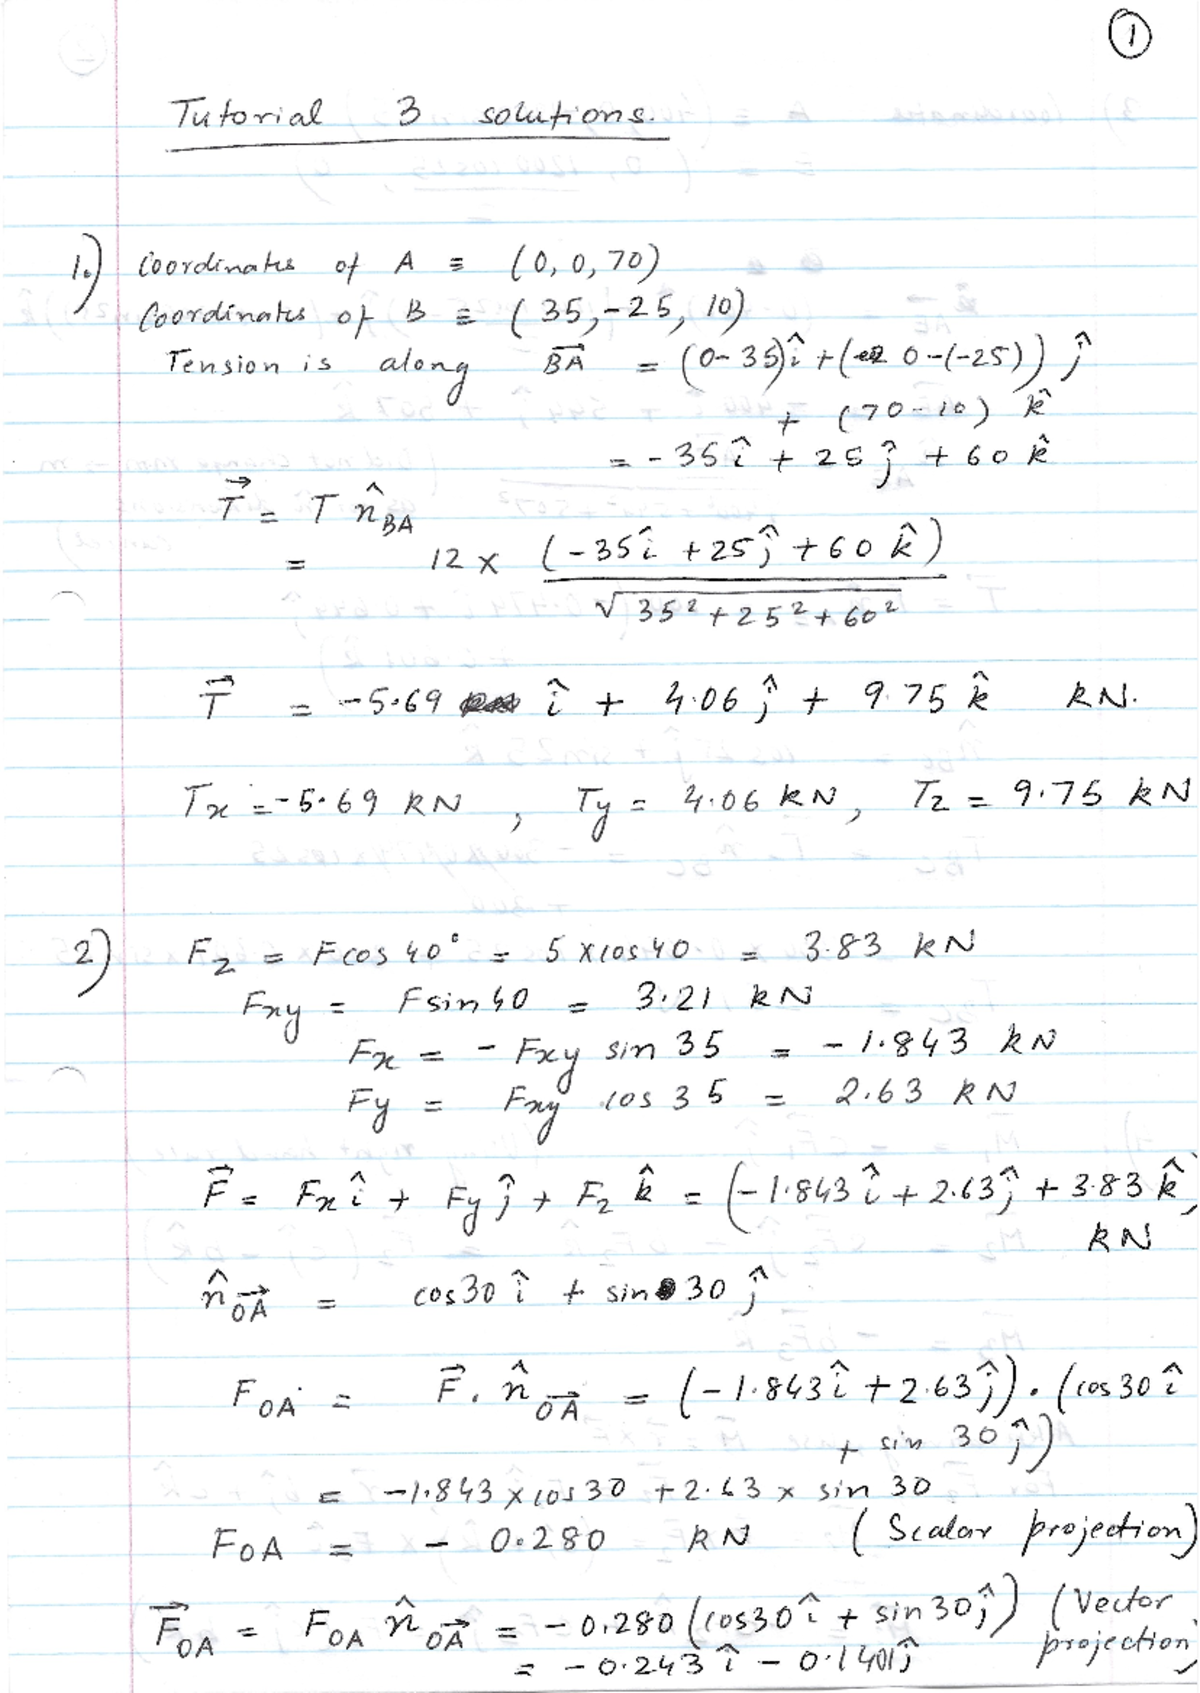 1
Tutorial 3 solutions.
1.) Coordinates of A ≡ (0, 0, 70)
Coordinates of B ≡ (35, -25, 10)
Tension is along BA⃗ = (0-35)î + (0-(-25)) ĵ
+ (70-10) k̂
= -35 î + 25 ĵ + 60 k̂
T⃗ = T n̂BA
= 12 x (-35î + 25ĵ + 60 k̂)
√35² + 25² + 60²
T⃗ = -5.69 î + 4.06 ĵ + 9.75 k̂ kN.
Tx = -5.69 kN , Ty = 4.06 kN, Tz = 9.75 kN
2) Fz = F cos 40° = 5 x cos 40 = 3.83 kN
Fxy = F sin 40 = 3.21 kN
Fx = - Fxy sin 35 = - 1.843 kN
Fy = Fxy cos 35 = 2.63 kN
F⃗ = Fx î + Fy ĵ + Fz k̂ = (-1.843 î + 2.63 ĵ + 3.83 k̂)
kN
n̂OA⃗ = cos30 î + sin 30 ĵ
FOA = F⃗ . n̂OA⃗ = (-1.843î + 2.63ĵ) . (cos 30 î
+ sin 30 ĵ)
= -1.843 x cos 30 + 2.63 x sin 30
FOA = - 0.280 kN (Scalar projection)
F⃗OA = FOA n̂OA⃗ = - 0.280 (cos30 î + sin 30 ĵ) (Vector
= - 0.243 î - 0.1401 ĵ projection)